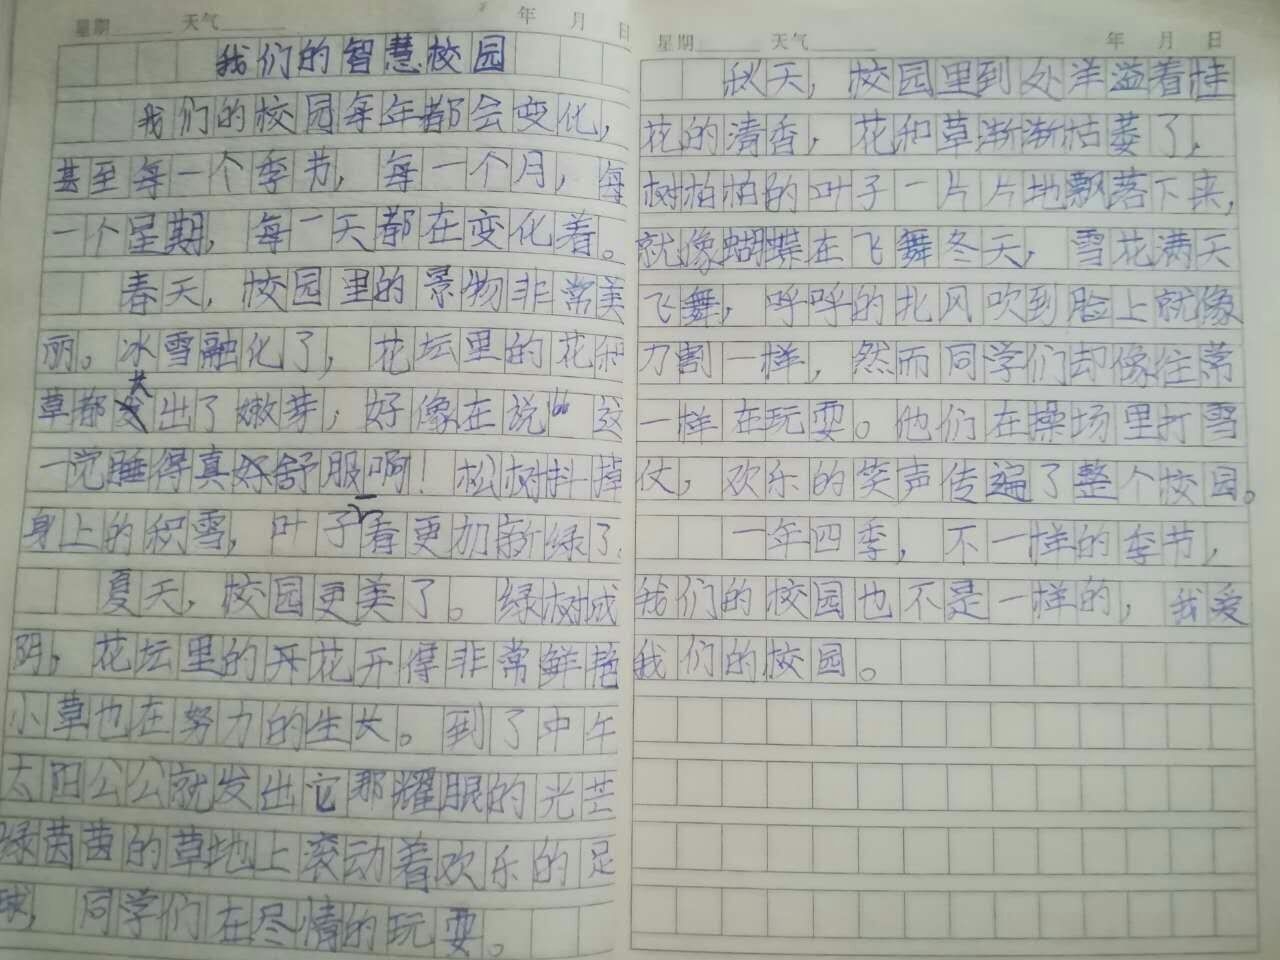 星期 天气 年 月 日
我们的智慧校园
我们的校园每年都会变化,
甚至每一个季节,每一个月,每
一个星期,每一天都在变化着。
春天,校园里的景物非常美
丽。冰雪融化了,花坛里的花和
草都发出了嫩芽,好像在说“这
一觉睡得真舒服啊!松树抖掉
身上的积雪,叶子看更加新绿了.
夏天,校园更美了。绿树成
阴,花坛里的开花开得非常鲜艳
小草也在努力的生长。到了中午
太阳公公就发出它那耀眼的光芒
绿茵茵的草地上滚动着欢乐的足
球,同学们在尽情的玩耍。
星期 天气 年 月 日
秋天,校园里到处洋溢着桂
花的清香,花和草渐渐枯萎了,
树柏柏的叶子一片片地飘落下来,
就像蝴蝶在飞舞冬天,雪花满天
飞舞,呼呼的北风吹到脸上就像
刀割一样,然而同学们却像往常
一样在玩耍。他们在操场里打雪
仗,欢乐的笑声传遍了整个校园。
一年四季,不一样的季节,
我们的校园也不是一样的,我爱
我们的校园。